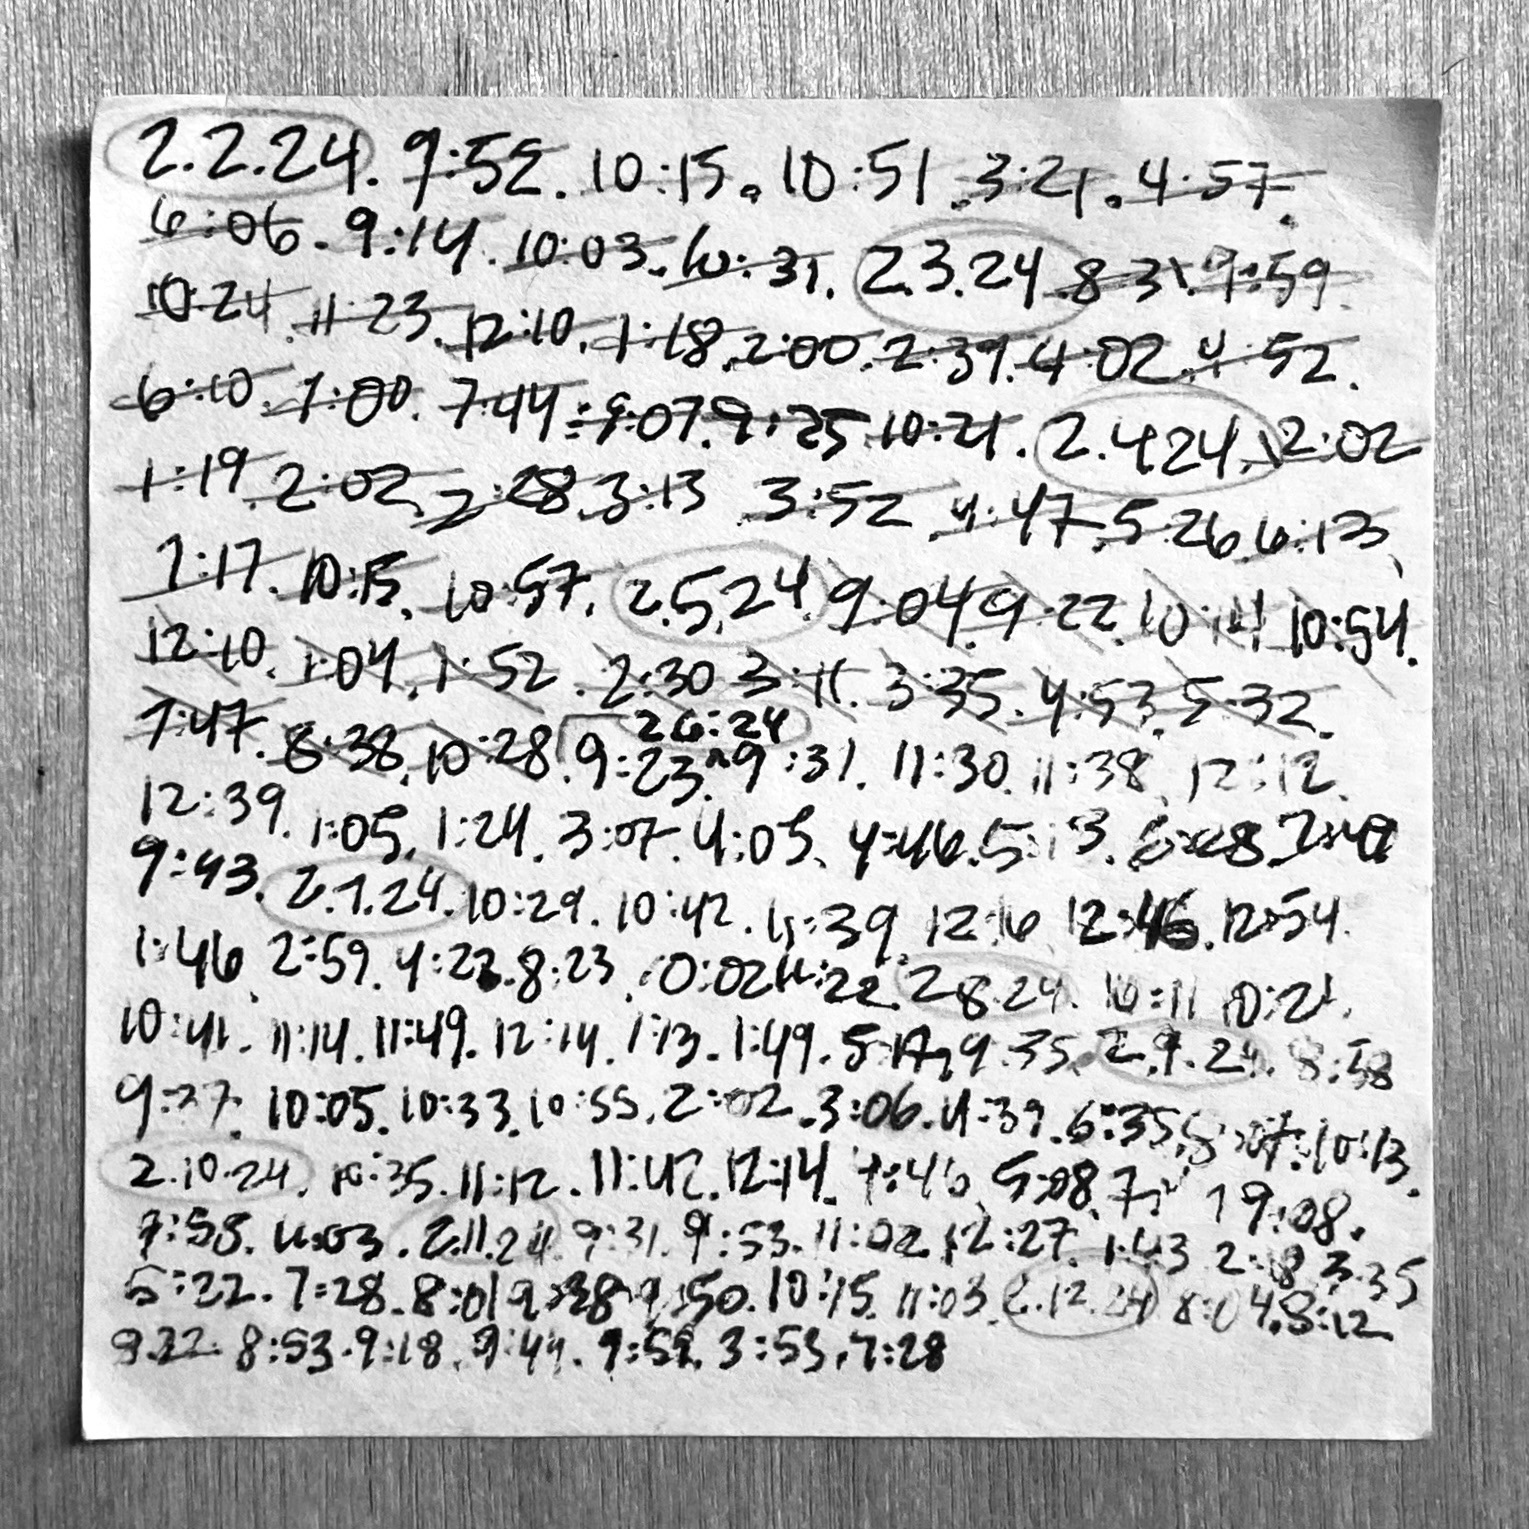 2.2.24. 9:52. 10:15. 10:51. 3:21. 4:57.
6:06. 9:14. 10:03. 10:31. 2.3.24. 8:31. 9:59.
10:24. 11:23. 12:10. 1:18. 2:00. 2:39. 4:02. 4:52.
6:10. 7:00. 7:44. 9:07. 9:25. 10:21. 2.4.24. 12:02
1:19. 2:02. 2:28. 3:13 3:52. 4:47. 5:26 6:13.
7:17. 10:15. 10:57. 2.5.24. 9:04. 9:22. 10:14 10:54.
12:10. 1:04. 1:52. 2:30 3:11. 3:35. 4:53. 5:32.
2.6.24
7:47. 8:38. 10:28. 9:23. 9:31. 11:30. 11:38. 12:12.
12:39. 1:05. 1:24. 3:07. 4:05. 4:46. 5:13.
9:43. 2.7.24. 10:29. 10:42. 11:39. 12:16 12:46. 12:54.
1:46. 2:59. 4:22. 8:23. 10:02 11:22. 2.8.24. 10:11 10:21.
10:41. 11:14. 11:49. 12:14. 1:13. 1:49. 9:35. 2.9.24. 8:58
9:27. 10:05. 10:33. 10:55. 2:02. 3:06. 4:39. 6:35. 10:13.
2.10.24. 10:35. 11:12. 11:42. 12:14. 5:08. 9:08.
4:03. 2.11.24. 9:31. 9:53. 11:02. 12:27. 1:43 2:18 3:35
5:22. 7:28. 8:01 9:38. 9:50. 10:15. 11:03. 2.12.24 8:04. 8:12.
8:22. 8:53. 9:18. 9:44. 3:53. 7:28